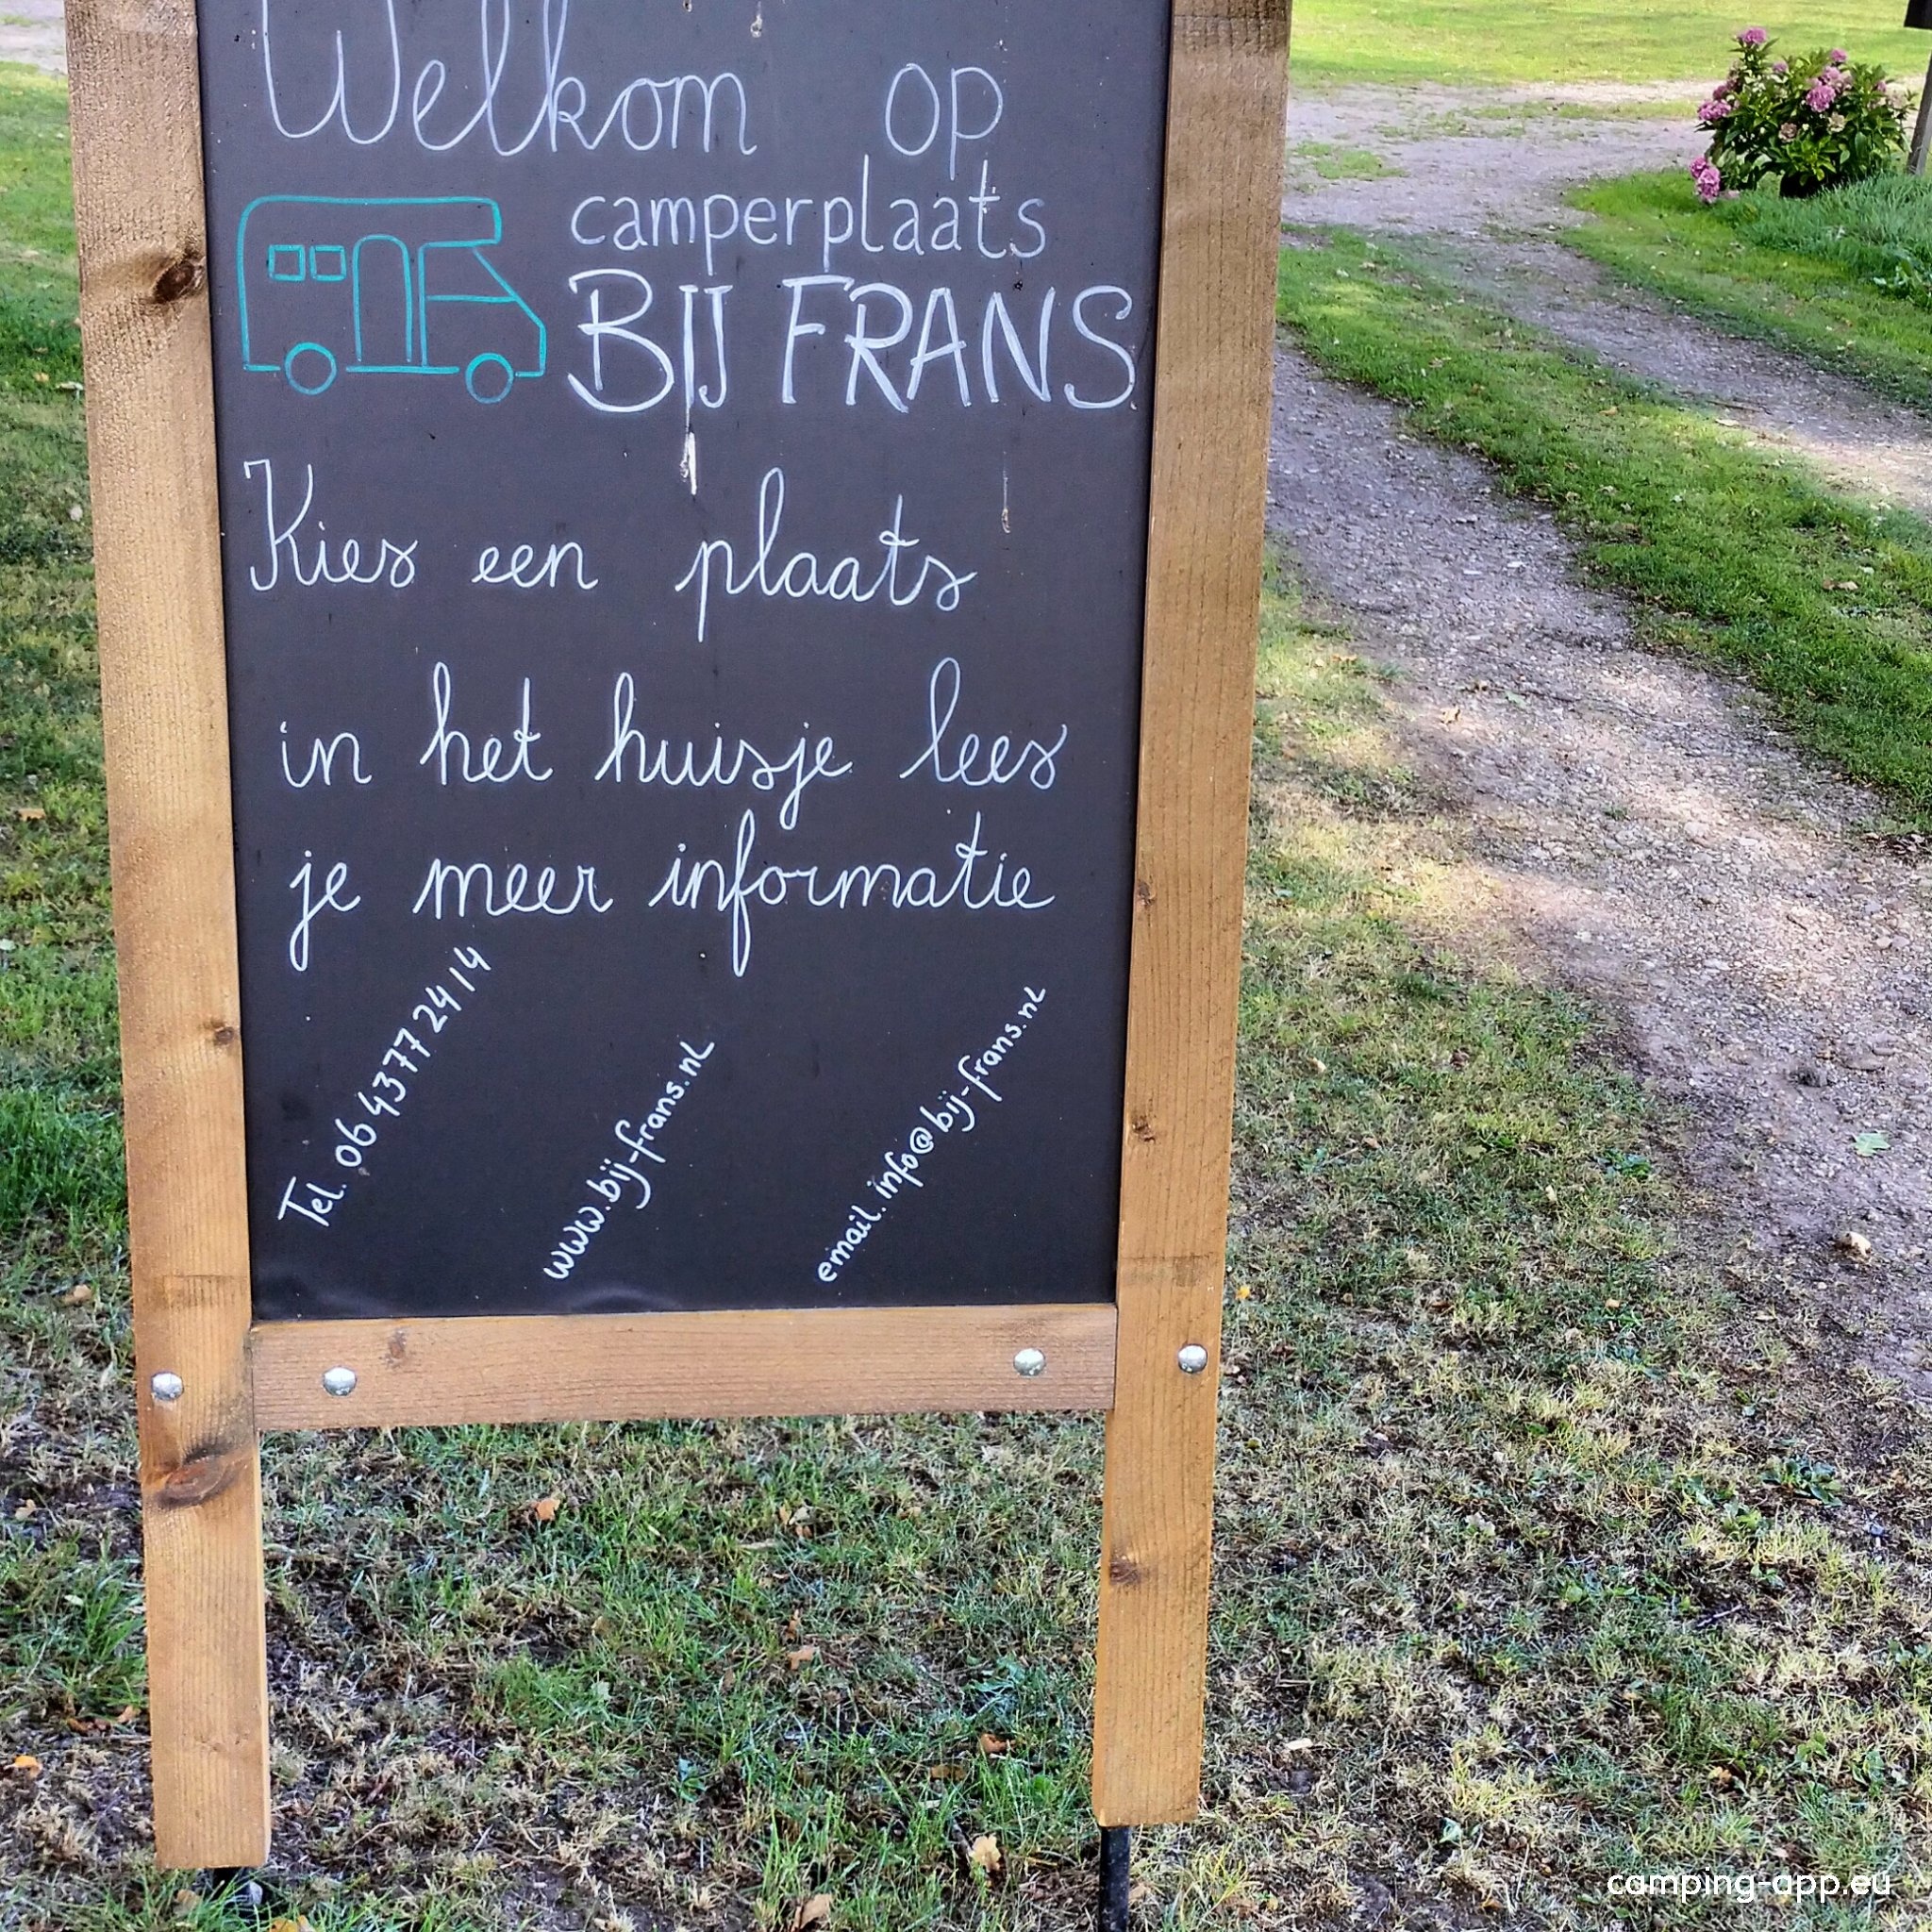 Welkom op
camperplaats
BIJ FRANS
Kies een plaats
in het huisje lees
je meer informatie
Tel. 06 4377 2414
www.bij-frans.nl
email. info@bij-frans.nl
camping-app.eu